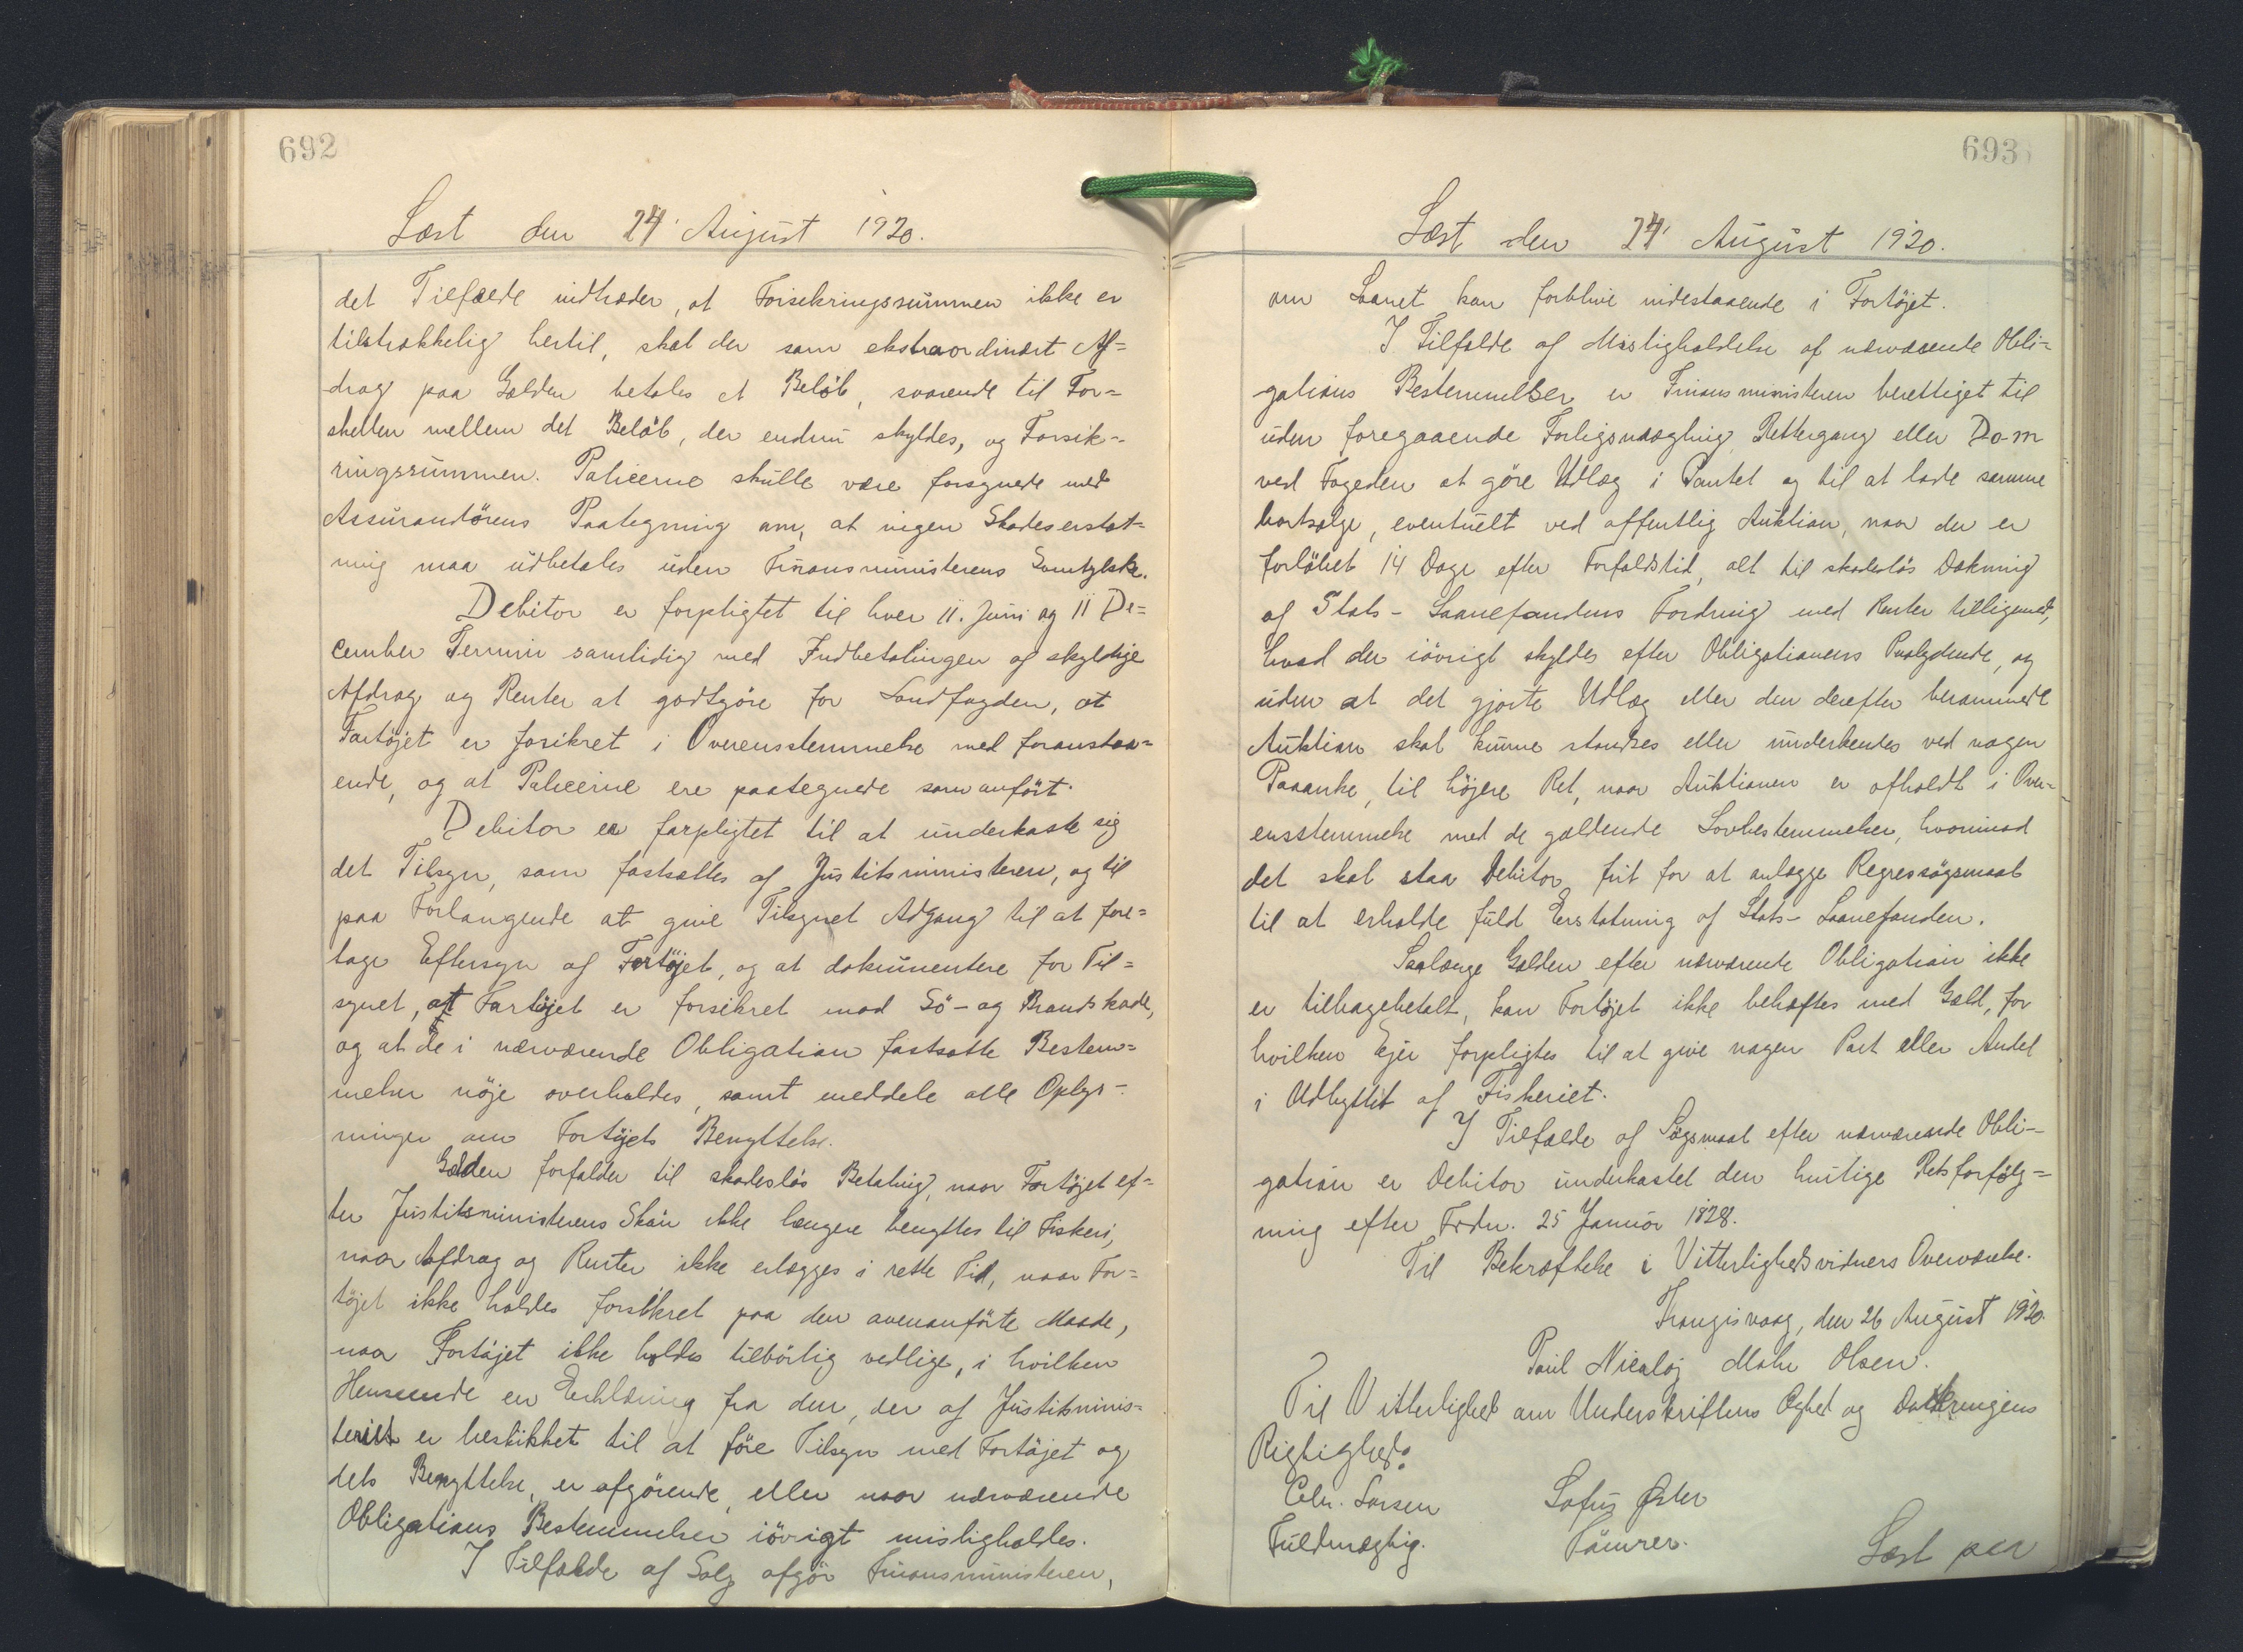 692
Læst den 24' August 1920.
det Tilfælde indtræder, at Forsikringssummen ikke er
tilstrækkelig hertil, skal der som ekstraordinært Af=
drag paa Gælden betales et Beløb, svarende til For=
skellen mellem det Beløb, der endnu skyldes, og Forsik=
ringssummen. Policerne skulle være forsynede med
Assurandörens Paategning om, at ingen Skadeserstat=
ning maa udbetales uden Finansministerens Samtykke.
Debitor er forpligtet til hver 11. Juni og 11 De=
cember Termin samtidig med Indbetalingen af skyldige
Afdrag og Renter at godtgöre for Landfogden, at
Fartöjet er forsikret i Overensstemmelse med foranstaa=
ende, og at Policerne ere paategnede som anfört.
Debitor er forpligtet til at underkaste sig
det Tilsyn, som fastsættes af Justitsministeren, og til
paa Forlangende at give Tilsynet Adgang til at fore=
tage Eftersyn af Fartöjet, og at dokumentere for Til=
synet, at Fartöjet er forsikret mod Sö- og Brandskade,
og at de i nærværende Obligation fastsatte Bestem=
melser nöje overholdes, samt meddele alle Oplys=
ninger om Fartöjets Benyttelse.
Gælden forfalder til skadeslös Betaling, naar Fartöjet ef=
ter Justitsministerens Skön ikke længere benyttes til Fiskeri,
naar Afdrag og Renter ikke erlægges i rette Tid, naar Far=
töjet ikke holdes forsikret paa den ovenanförte Maade,
naar Fartöjet ikke holdes tilbörlig vedlige, i hvilken
Henseende en Erklæring fra den, der af Justitsminis=
teriet er beskikket til at före Tilsyn med Fartöjet og
dets Benyttelse, er afgörende, eller naar nærværende
Obligations Bestemmelser iövrigt misligholdes.
I Tilfælde af Salg afgör Finansministeren,
693
Læst den 24' August 1920.
om Laanet kan forblive indestaaende i Fartöjet.
I Tilfælde af Misligholdelse af nærværende Obli=
gations Bestemmelser er Finansministeren berettiget til
uden foregaaende Forligsmægling, Rettergang eller Dom
ved Fogeden at göre Udlæg i Pantet og til at lade samme
bortsælge, eventuelt ved offentlig Auktion, naar der er
forlöbet 14 Dage efter Forfaldstid, alt til skadeslös Dækning
af Stats-Laanefondens Fordring med Renter tilligemed,
hvad der iövrigt skyldes efter Obligationens Paalydende, og
uden at det gjorte Udlæg eller den derefter berammede
Auktion skal kunne standses eller underkendes ved nogen
Paaanke, til höjere Ret, naar Auktionen er afholdt i Over=
ensstemmelse med de gældende Lovbestemmelser, hvorimod
det skal staa Debitor frit for at anlægge Regressögsmaal
til at erholde fuld Erstatning af Stats-Laanefonden.
Saalænge Gælden efter nærværende Obligation ikke
er tilbagebetalt, kan Fartöjet ikke behæftes med Gæld, for
hvilken Ejer forpligtes til at give nogen Part eller Andel
i Udbyttet af Fiskeriet.
I Tilfælde af Søgsmaal efter nærværende Obli=
gation er Debitor underkastet den hurtige Retsforfölg=
ning efter Frdn. 25 Januar 1828.
Til Bekræftelse i Vitterlighedsvidners Overværelse.
Trangisvaag, den 26 August 1920.
Poul Nicolaj Mohr Olsen.
Til Vitterlighed om Underskriftens Ægthed og Dateringens
Rigtighed:
Chr. Larsen Sofus Øster
Fuldmægtig. Tömrer.
Læst paa